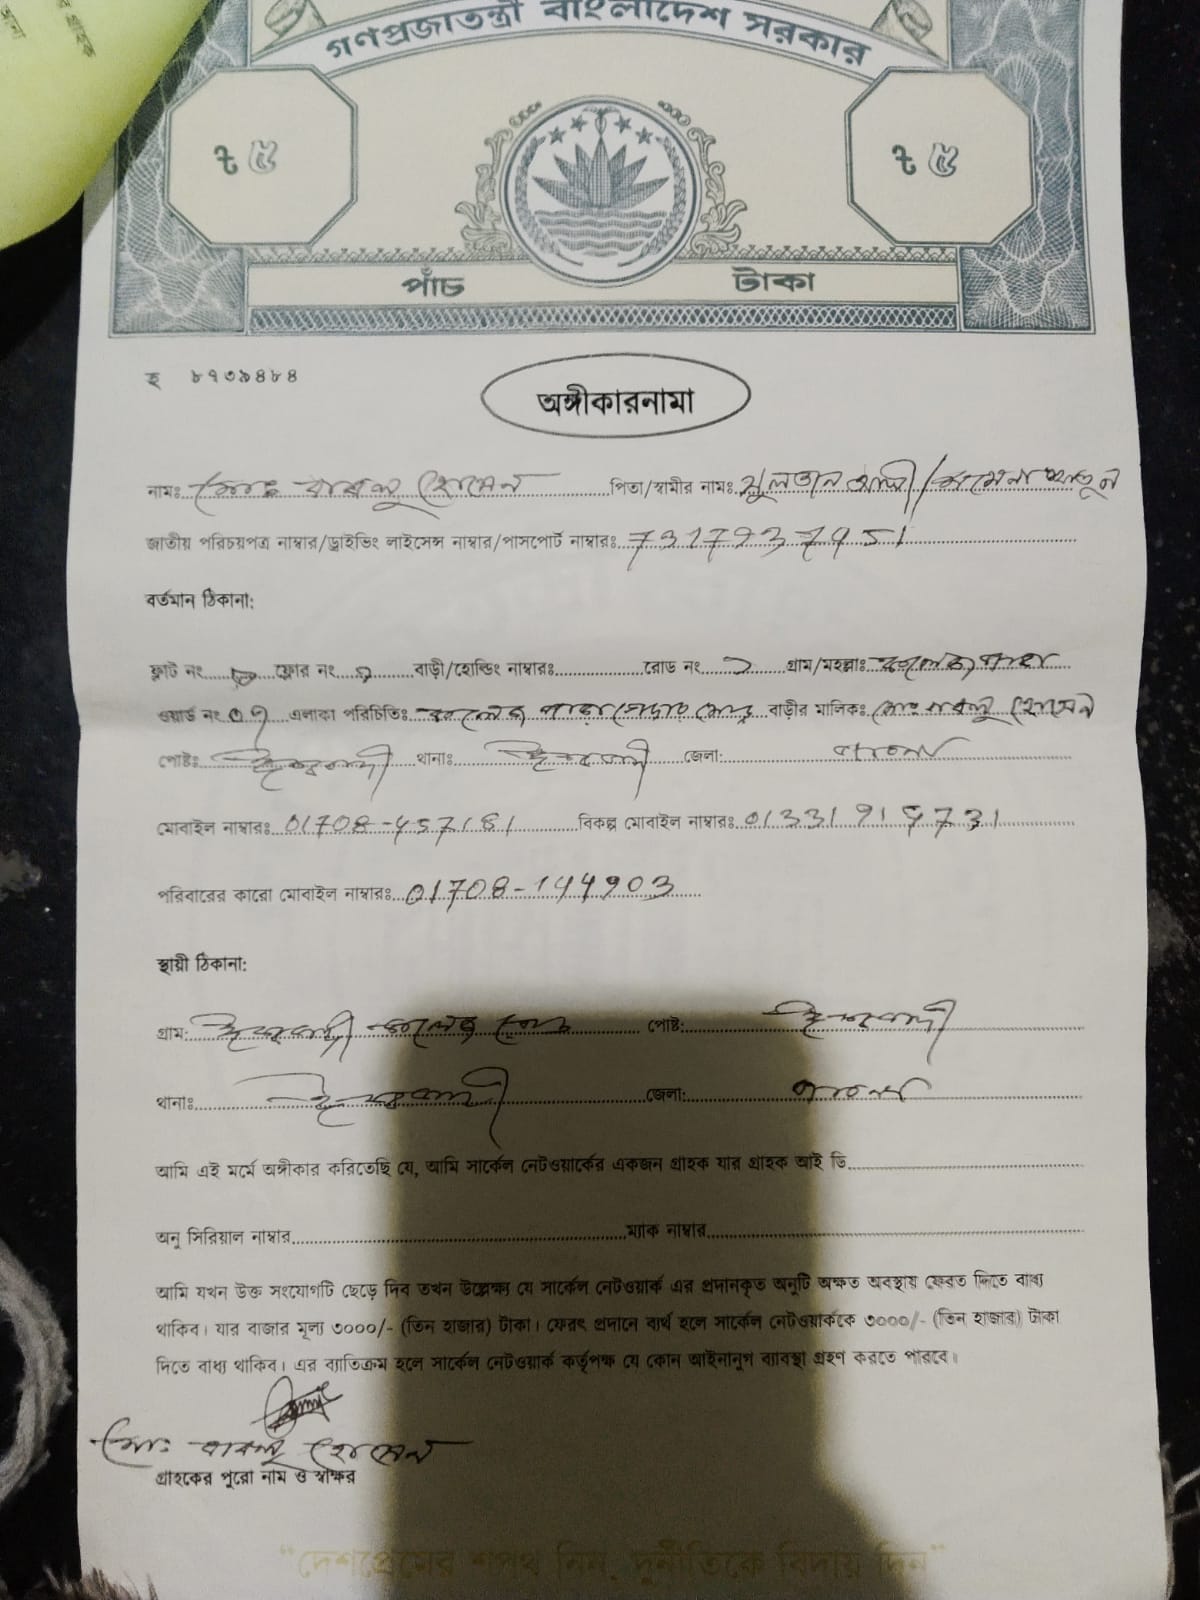 গণপ্রজাতন্ত্রী বাংলাদেশ সরকার
৳ ৫ ৳ ৫
পাঁচ টাকা
হ ৮৭৩৯৪৮৪
অঙ্গীকারনামা
নামঃ মোঃ বাবলু হোসেন পিতা/স্বামীর নামঃ সুলতান আলী/ খাতুন
জাতীয় পরিচয়পত্র নাম্বার/ড্রাইভিং লাইসেন্স নাম্বার/পাসপোর্ট নাম্বারঃ
বর্তমান ঠিকানা:
ফ্লাট নং ফ্লোর নং বাড়ী/হোল্ডিং নাম্বারঃ রোড নং গ্রাম/মহল্লাঃ
ওয়ার্ড নং ০৭ এলাকা পরিচিতিঃ বাড়ীর মালিকঃ মোঃ বাবলু হোসেন
পোষ্টঃ ঈশ্বরদী থানাঃ ঈশ্বরদী জেলা: পাবনা
মোবাইল নাম্বারঃ 01708-457181 বিকল্প মোবাইল নাম্বারঃ
পরিবারের কারো মোবাইল নাম্বারঃ 01708-144903
স্থায়ী ঠিকানা:
গ্রাম: ঈশ্বরদী কলেজ রোড পোষ্ট: ঈশ্বরদী
থানাঃ ঈশ্বরদী জেলা: পাবনা
আমি এই মর্মে অঙ্গীকার করিতেছি যে, আমি সার্কেল নেটওয়ার্কের একজন গ্রাহক যার গ্রাহক আই ডি
অনু সিরিয়াল নাম্বার ম্যাক নাম্বার
আমি যখন উক্ত সংযোগটি ছেড়ে দিব তখন উল্লেক্ষ্য যে সার্কেল নেটওয়ার্ক এর প্রদানকৃত অনুটি অক্ষত অবস্থায় ফেরত দিতে বাধ্য
থাকিব। যার বাজার মূল্য ৩০০০/- (তিন হাজার) টাকা। ফেরৎ প্রদানে ব্যর্থ হলে সার্কেল নেটওয়ার্ককে ৩০০০/- (তিন হাজার) টাকা
দিতে বাধ্য থাকিব। এর ব্যাতিক্রম হলে সার্কেল নেটওয়ার্ক কর্তৃপক্ষ যে কোন আইনানুগ ব্যাবস্থা গ্রহণ করতে পারবে।
মো: বাবলু হোসেন
গ্রাহকের পুরো নাম ও স্বাক্ষর
"দেশপ্রেমের শপথ নিন, দুর্নীতিকে বিদায় দিন"